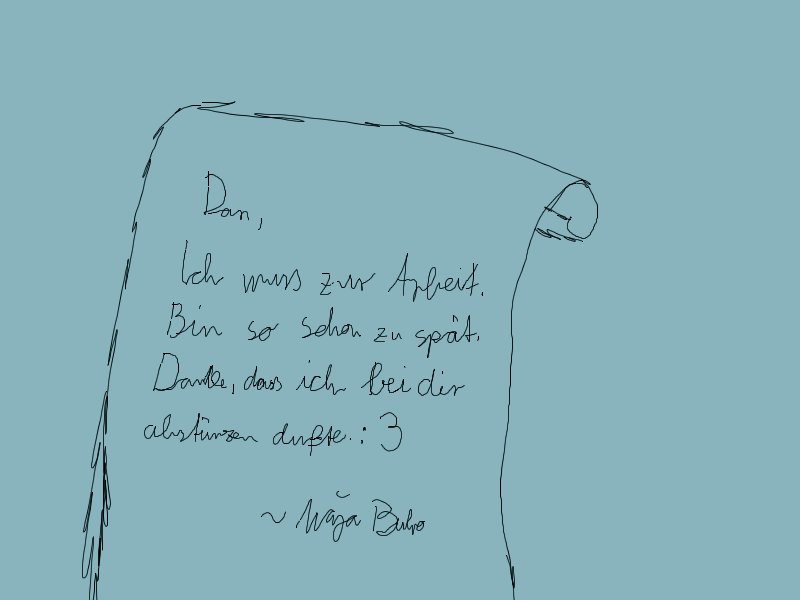 Dan,
Ich muss zur Arbeit.
Bin so schon zu spät.
Danke, dass ich bei dir
abstürzen durfte. :3
~ Bubo